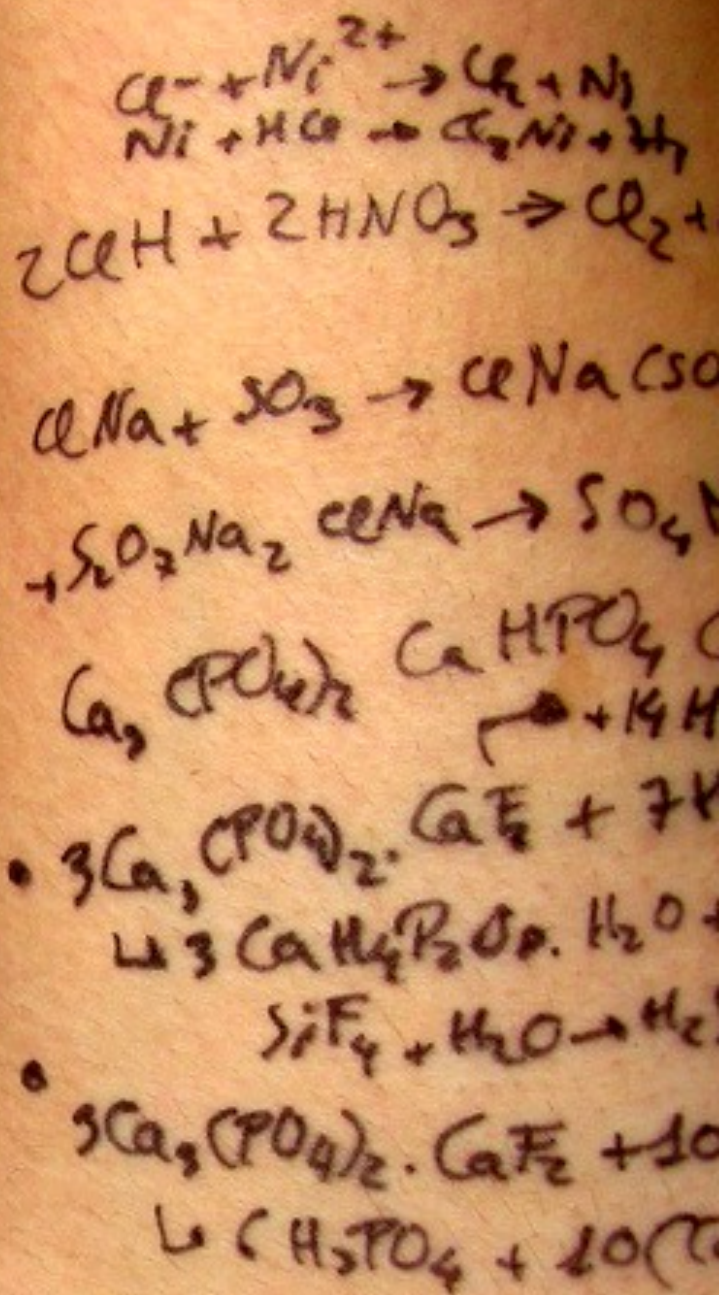 Cl⁻ + Ni²⁺ → Cl₂ + Ni
Ni + HCl → Cl₂Ni + H₂
2ClH + 2HNO₃ → Cl₂ +
ClNa + SO₃ → ClNa(SO
→ S₂O₇Na₂ ClNa → SO₄
Ca₃(PO₄)₂ CaHPO₄
+ 14H
• 3Ca₃(PO₄)₂ · CaF₂ + 7
↳ 3CaH₄P₂O₈ · H₂O +
SiF₄ + H₂O → H₂
• 3Ca₃(PO₄)₂ · CaF₂ + 10
↳ 6H₃PO₄ + 10(